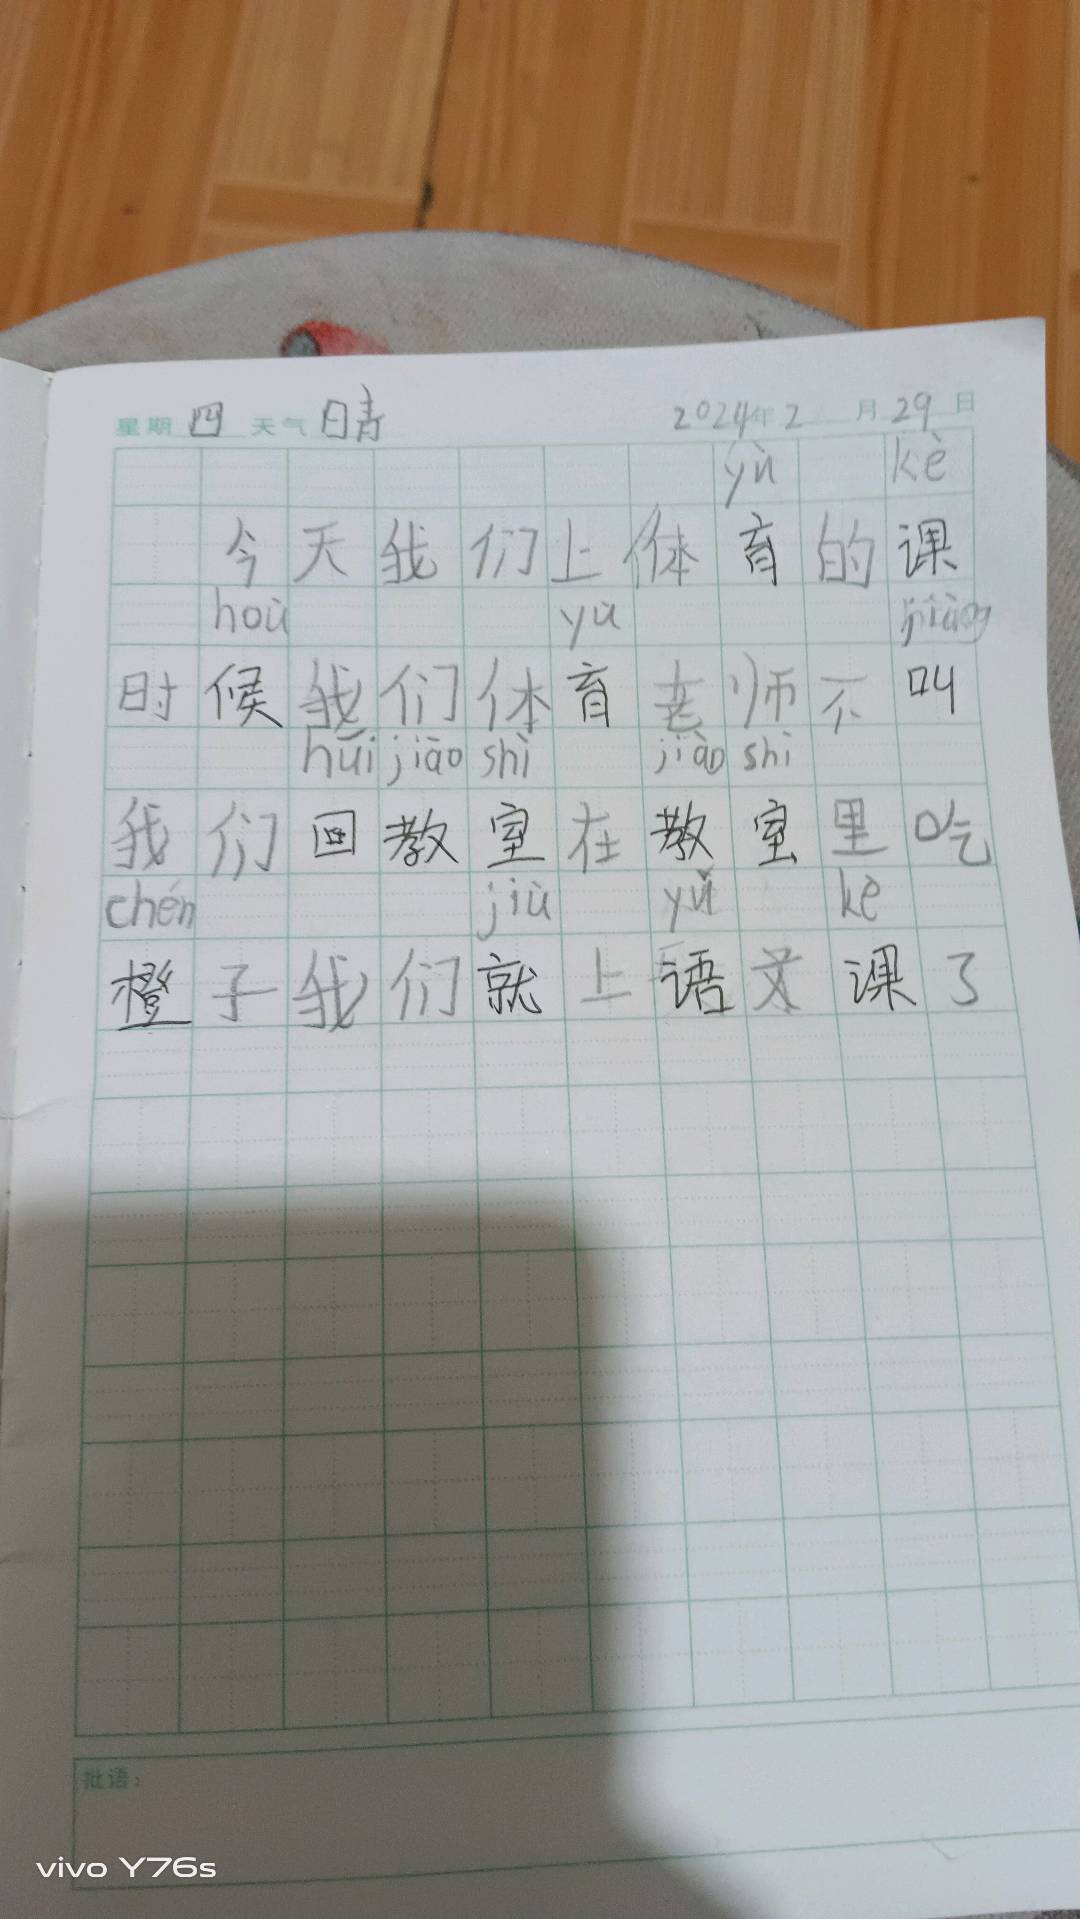 星期 四 天气 晴 2024年 2 月 29 日
yù kè
今天我们上体育的课
hoù yù
时候我们体育老师不叫
huí jiào shì jiào shì
我们回教室在教室里吃
chén jiù yǔ kè
橙子我们就上语文课了
批语:
vivo Y76s